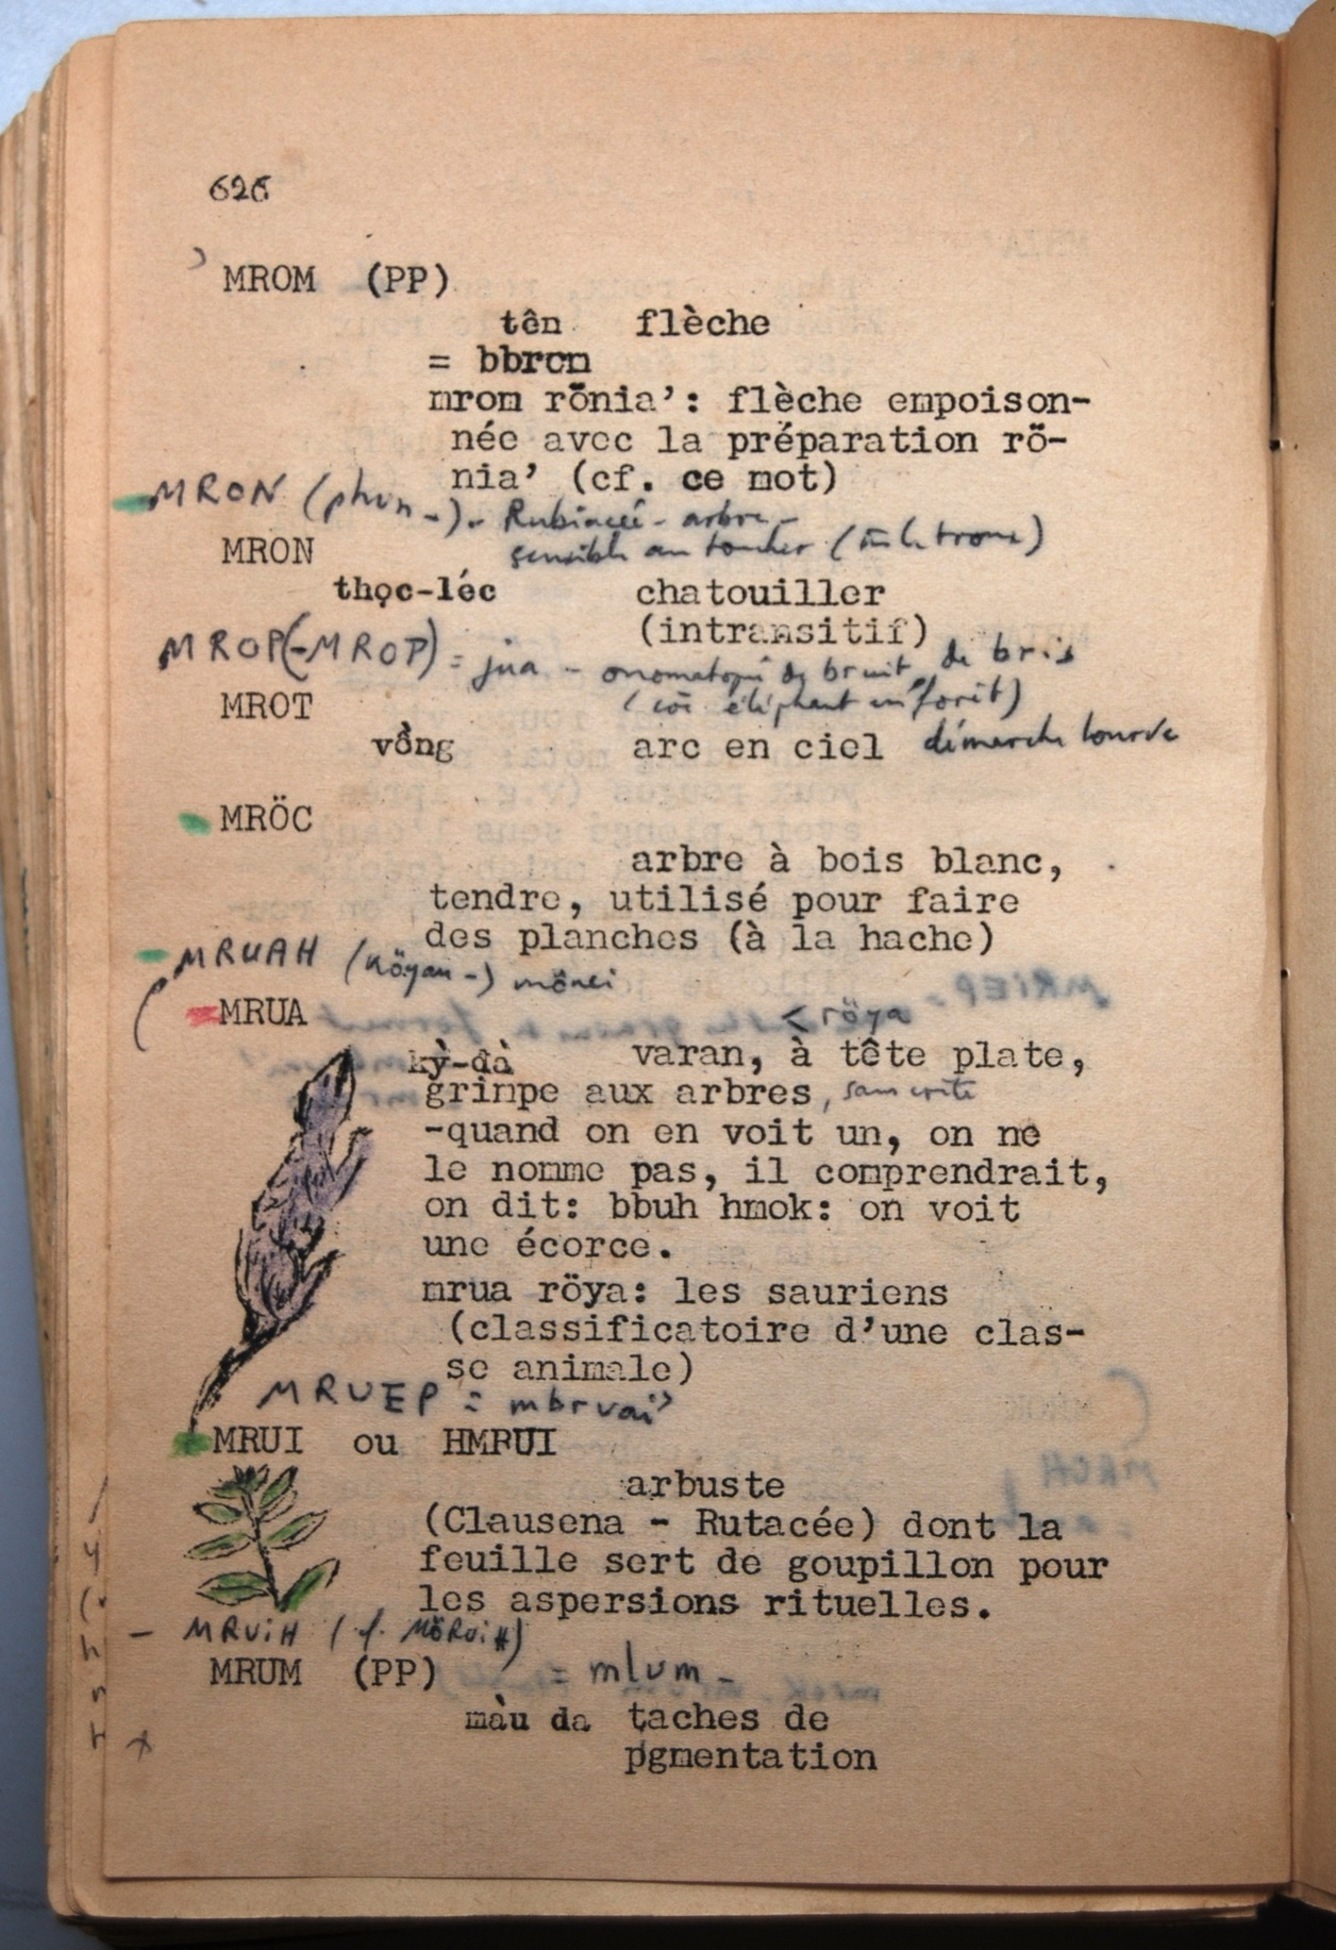 626
MROM (PP)
tên flèche
= bbrcn
mrom rönia’: flèche empoison-
née avec la préparation rö-
nia’ (cf. ce mot)
MRON (phun -). Rubiacée - arbre -
MRON
sensible au toucher
thọc-léc chatouiller
(intransitif)
MROP(-MROP) = jua - onomatopée de bruit, de bris
MROT
(éléphant en forêt)
vồng arc en ciel démarche lourde
MRÖC
arbre à bois blanc,
tendre, utilisé pour faire
des planches (à la hache)
MRUAH (Köyau -)
MRUA < röya
kỳ-đà varan, à tête plate,
grimpe aux arbres, sans crête
-quand on en voit un, on ne
le nomme pas, il comprendrait,
on dit: bbuh hmok: on voit
une écorce.
mrua röya: les sauriens
(classificatoire d’une clas-
se animale)
MRUEP = mbruai’
MRUI ou HMRUI
arbuste
(Clausena - Rutacée) dont la
feuille sert de goupillon pour
les aspersions rituelles.
- MRUIH (cf. MÖRUIH)
MRUM (PP) = mlum -
màu da taches de
pgmentation